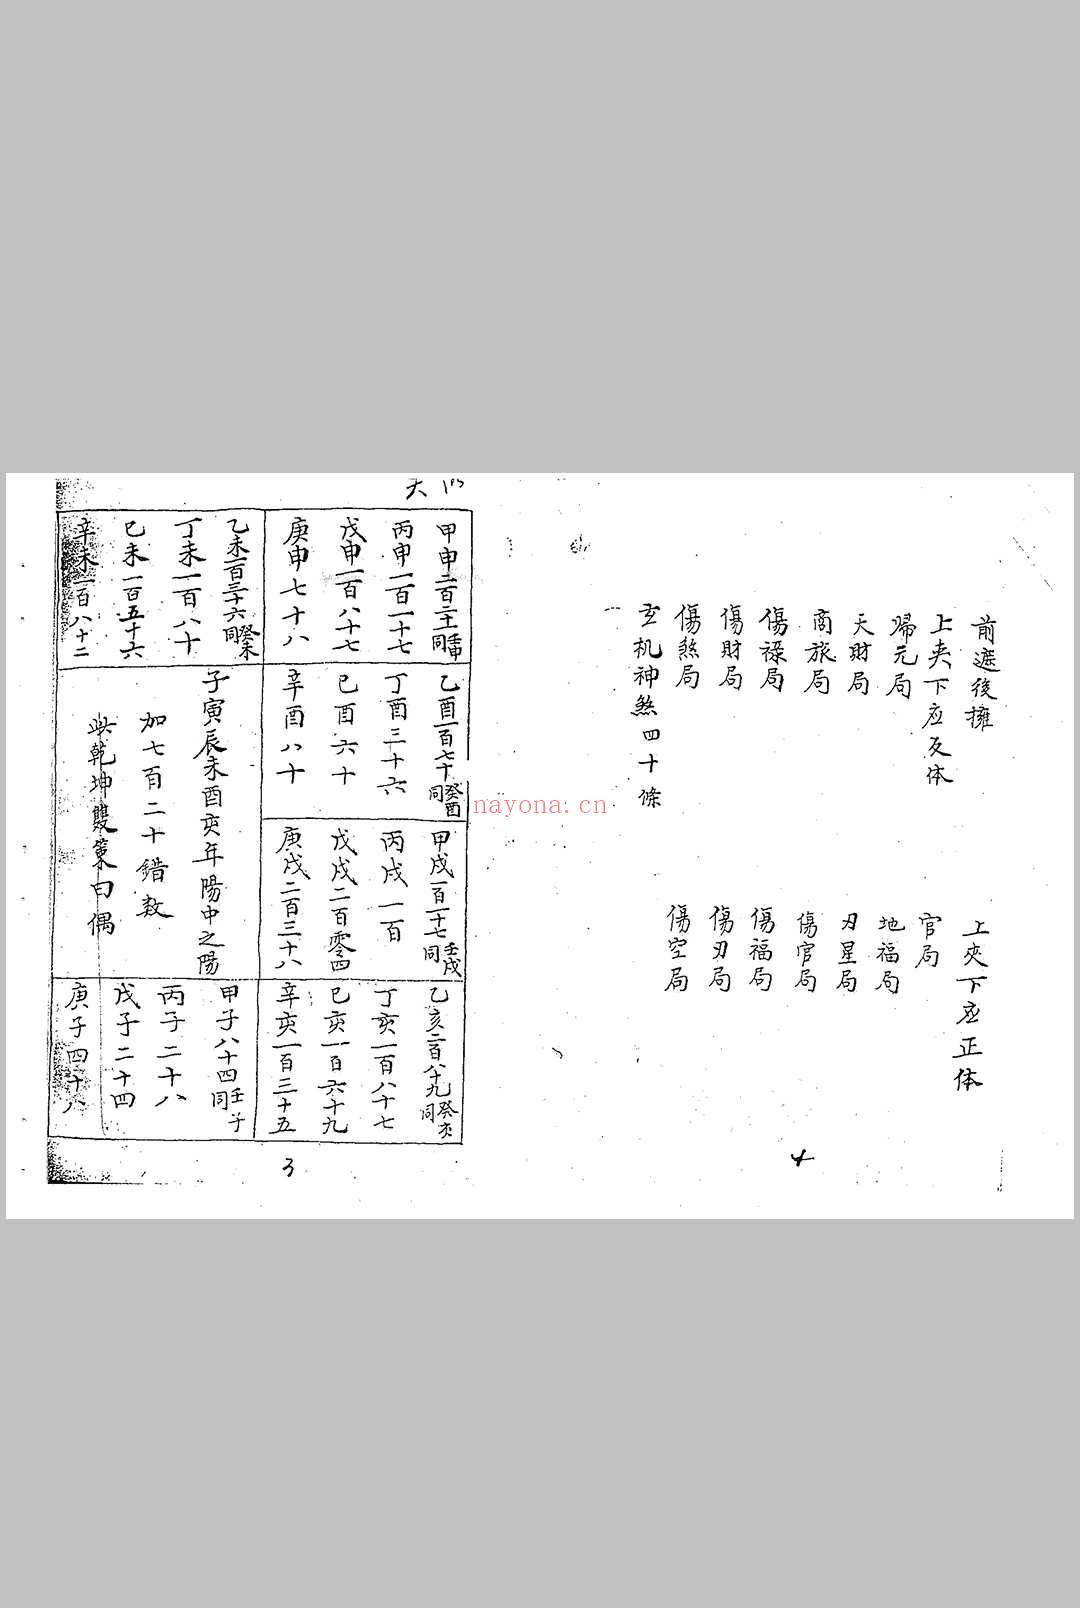 前遮後擁
上夾下应正体
上夾下应反体
官局
帰元局
地福局
天財局
刃星局
商旅局
傷官局
傷祿局
傷福局
傷財局
傷刃局
傷煞局
傷空局
玄机神煞四十條
4
天
甲申二百二十壬申同
丙申一百一十七
戊申一百八十七
庚申七十八
乙未一百三十六癸未同
丁未一百八十
己未一百五十六
辛未一百八十二
乙酉一百七十癸酉同
丁酉三十六
己酉六十
辛酉八十
子寅辰未酉亥年陽中之陽
加七百二十錯数
乾坤雙策曰偶
甲戌一百一十七壬戌同
丙戌一百
戊戌二百零四
庚戌二百三十八
乙亥二百八十九癸亥同
丁亥一百八十七
己亥一百六十九
辛亥一百三十五
甲子八十四壬子同
丙子二十八
戊子二十四
庚子四十八
3
nayona.cn